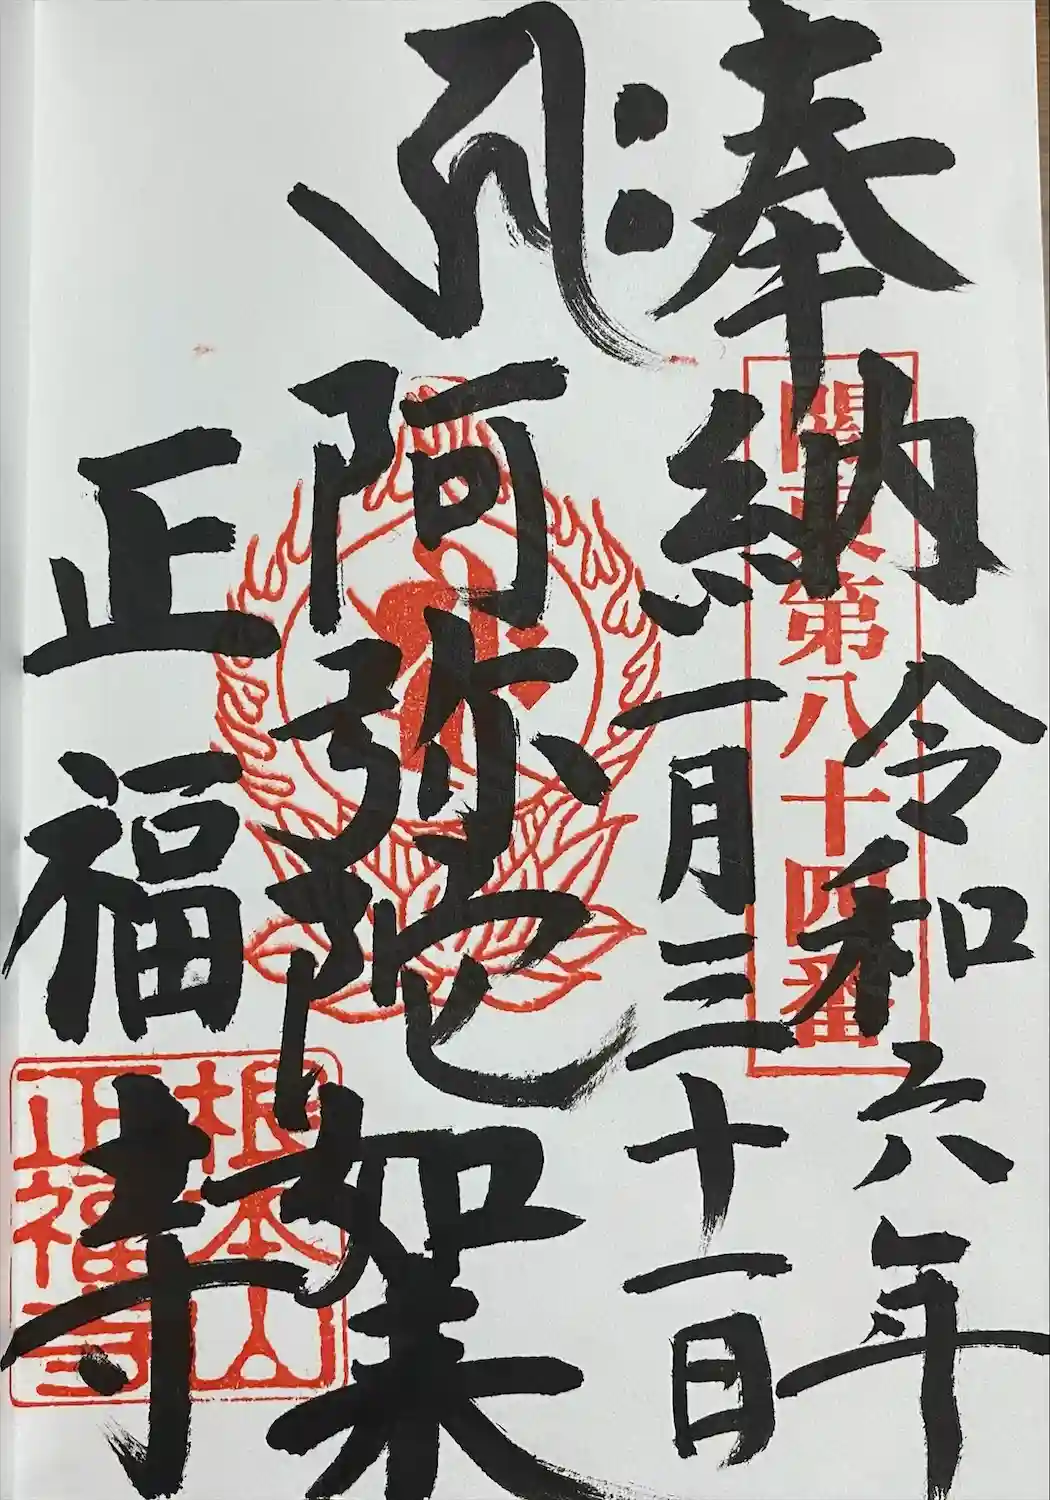 奉納
令和六年
一月三十一日
関東第八十四番
阿弥陀如来
正福寺
根本山
正福寺